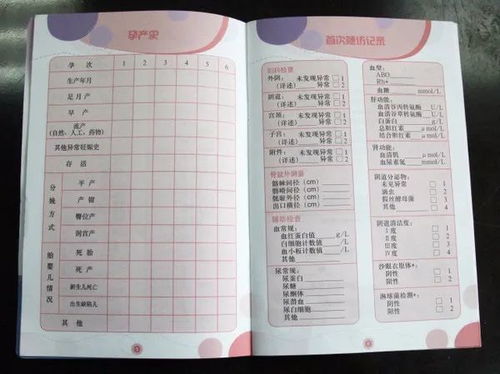 孕产史
孕 次 1 2 3 4 5 6
生产年月
足月产
早 产
流产
(自然、人工、药物)
其他异常妊娠史
存 活
分娩方式
平 产
产 钳
臀位产
剖宫产
胎婴儿情况
死 胎
死 产
新生儿死亡
出生缺陷儿
其 他
首次随访记录
妇科检查
外阴: 未发现异常 □ 1
(详述) 异常 □ 2
阴道: 未发现异常 □ 1
(详述) 异常 □ 2
宫颈: 未发现异常 □ 1
(详述) 异常 □ 2
子宫: 未发现异常 □ 1
(详述) 异常 □ 2
附件: 未发现异常 □ 1
(详述) 异常 □ 2
骨盆外测量
髂棘间径 (cm)
髂嵴间径 (cm)
骶耻外径 (cm)
出口横径 (cm)
辅助检查
血常规:
血红蛋白值 g/L
白细胞计数值 /L
血小板计数值 /L
其他
尿常规:
尿蛋白
尿糖
尿酮体
尿潜血
尿白细胞
其他
血型:
ABO
Rh*
血糖 mmol/L
肝功能:
血清谷丙转氨酶 U/L
血清谷草转氨酶 U/L
白蛋白 g/L
总胆红素 μmol/L
结合胆红素 μmol/L
肾功能:
血清肌 μmol/L
血尿素氮 mmol/L
阴道分泌物:
未见异常 □ 1
滴虫 □ 2
假丝酵母菌 □ 3
其他 □ 4
阴道清洁度:
Ⅰ度 □ 1
Ⅱ度 □ 2
Ⅲ度 □ 3
Ⅳ度 □ 4
沙眼衣原体*:
阴性 □ 1
阳性 □ 2
淋球菌检测*:
阴性 □ 1
阳性 □ 2